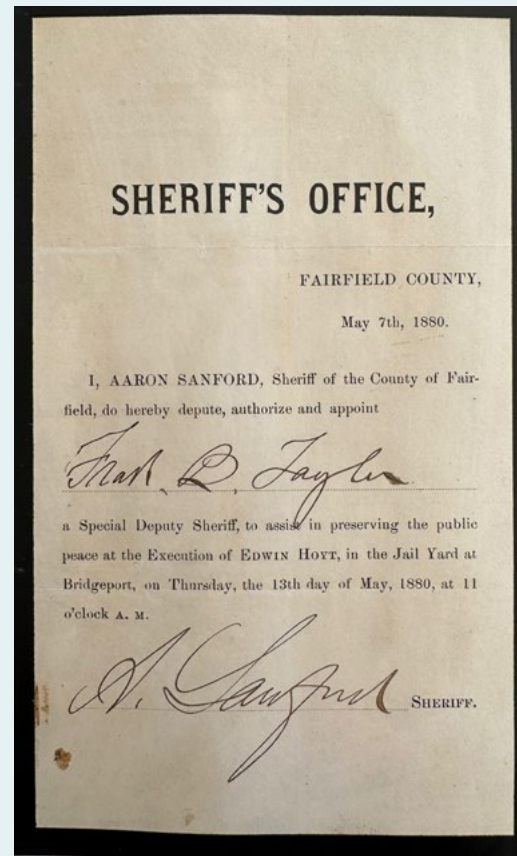 SHERIFF'S OFFICE,
FAIRFIELD COUNTY,
May 7th, 1880.
I, AARON SANFORD, Sheriff of the County of Fair-
field, do hereby depute, authorize and appoint
Frank B. Taylor
a Special Deputy Sheriff, to assist in preserving the public
peace at the Execution of EDWIN HOYT, in the Jail Yard at
Bridgeport, on Thursday, the 13th day of May, 1880, at 11
o'clock A. M.
A. Sanford SHERIFF.